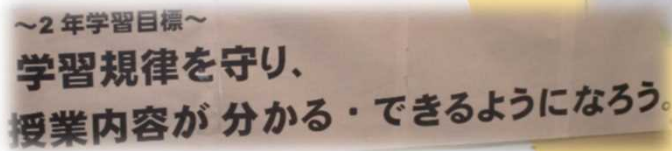 ～2年学習目標～
学習規律を守り、
授業内容が分かる・できるようになろう。